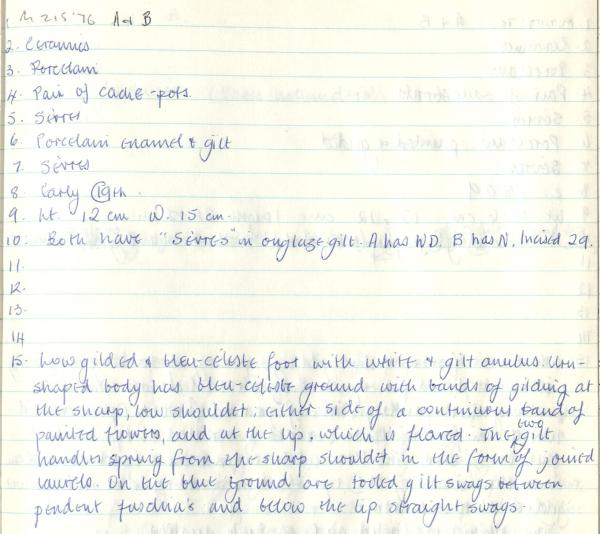 1 M 215'76 A & B
2. Ceramics
3. Porcelain
4. Pair of cache-pots.
5. Sèvres
6. Porcelain enamel & gilt
7. Sèvres
8. Early 19th.
9. ht. 12 cm D. 15 cm.
10. Both have "Sèvres" in onglaze gilt. A has WD. B has N, Incised 29.
11.
12.
13.
14
15. Low gilded & bleu-céleste foot with white & gilt anulus. Urn-
shaped body has bleu-céleste ground with bands of gilding at
the sharp, low shoulder; either side of a continuous band of
painted flowers, and at the lip, which is flared. The two gilt
handles spring from the sharp shoulder in the form of joined
laurels. On the blue ground are tooled gilt swags between
pendent fuschia's and below the lip straight swags.